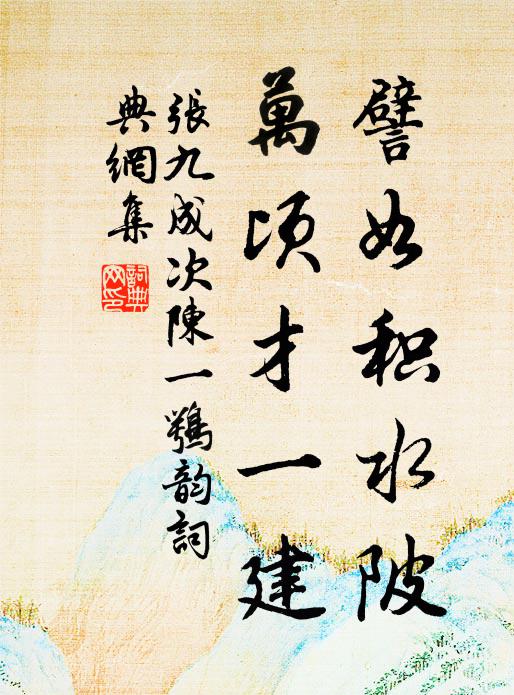 譬如积水陂
萬顷才一建
張九成次陳一鶚韵詞
典網集
詞典網印